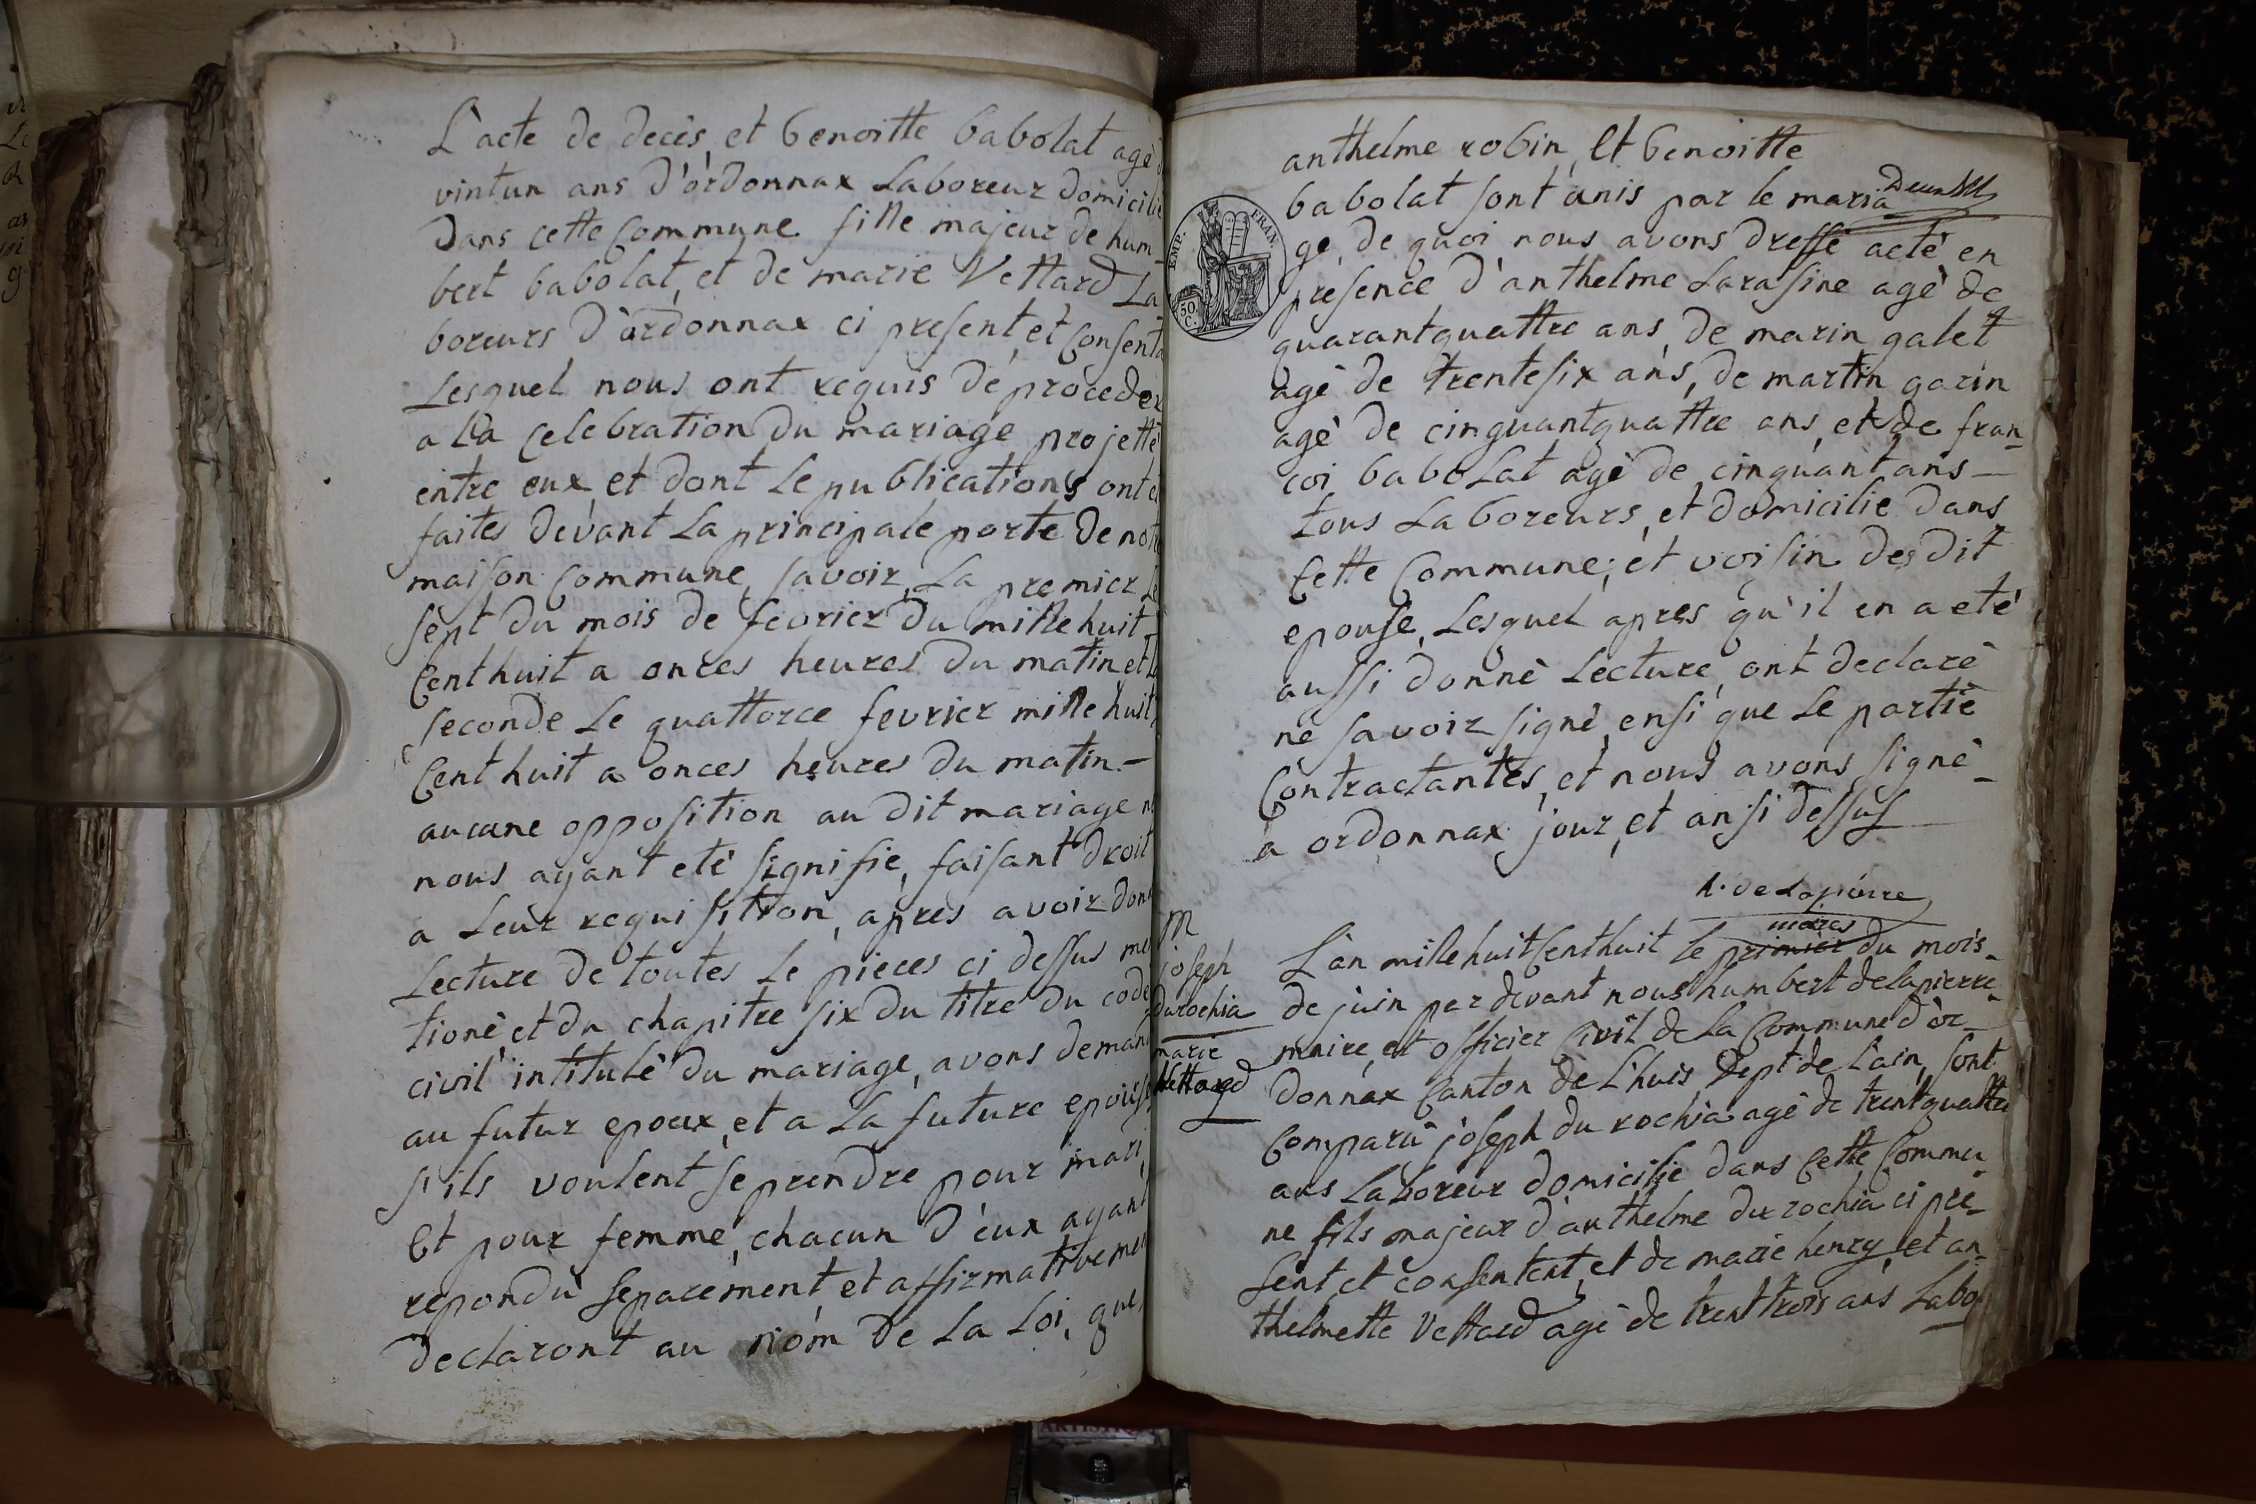 L'acte de decès, et benoitte babolat agè d
vintun ans d'ordonnax Laboreur domicilie
dans cette Commune fille majeur de hum-
bert babolat, et de marie Vettard La-
boreurs d'ordonnax ci present, et Consenta
Lesquel nous ont requis de proceder
a la Celebration du mariage projettè
entre eux, et dont Le publications ont e
faites devant La principale porte de notre
maison Commune, savoir, La premier Le
sept du mois de fevrier du mille huit
Cent huit a onces heures du matin et La
seconde Le quattorce fevrier mille huit
Cent huit a onces heures du matin -
aucune opposition au dit mariage ne
nous ayant etè signifie, faisant droit
a Leur requisition, apres avoir donn
Lecture de toutes Le pieces ci dessus men
tionè, et du chapitre six du titre du code
civil intitulè du mariage, avons demand
au futur epoux, et a La future epouse
s'ils voulent se prendre pour mari,
Et pour femme, chacun d'eux ayant
repondù separèment et affirmativemen
declaront au nom de La Loi, que,
anthelme robin, Et benoitte
babolat sont unis par le maria
ge, de quoi nous avons dressè actè en
presence d'anthelme Larasine agè de
quarantquattre ans, de marin galet
agè de trentesix ans, de martin garin
agè de cinquantquattre ans, et de fran-
coi babolat agè de cinquant ans -
tous Laboreurs, et domicilie dans
Cette Commune, et voisin des dit
epouse, Lesquel apres qu'il en a etè
aussi donnè Lecture, ont declarè
ne savoir signè, ensi que Le partiè
Contractantes, et nous avons signè -
a ordonnax jour, et an si dessus
EMP. FRAN.
50 C.
h. de Lapierre
maires
M
joseph
durochia
marie
Vettard
L'an mille huit Cent huit le premier du mois
de juin par devant nous humbert delapierre
maire, et officier Civil de La Commune d'or-
donnax Canton de L'huis, Dept. de L'ain, sont
Comparù joseph du rochia agè de trentquattre
ans Laboreur domicilie dans Cette Commu-
ne fils majeur d'anthelme du rochia ci pre-
sent, et consentent, et de marie henry, et an-
thelmette Vettard agè de trent trois ans Labo